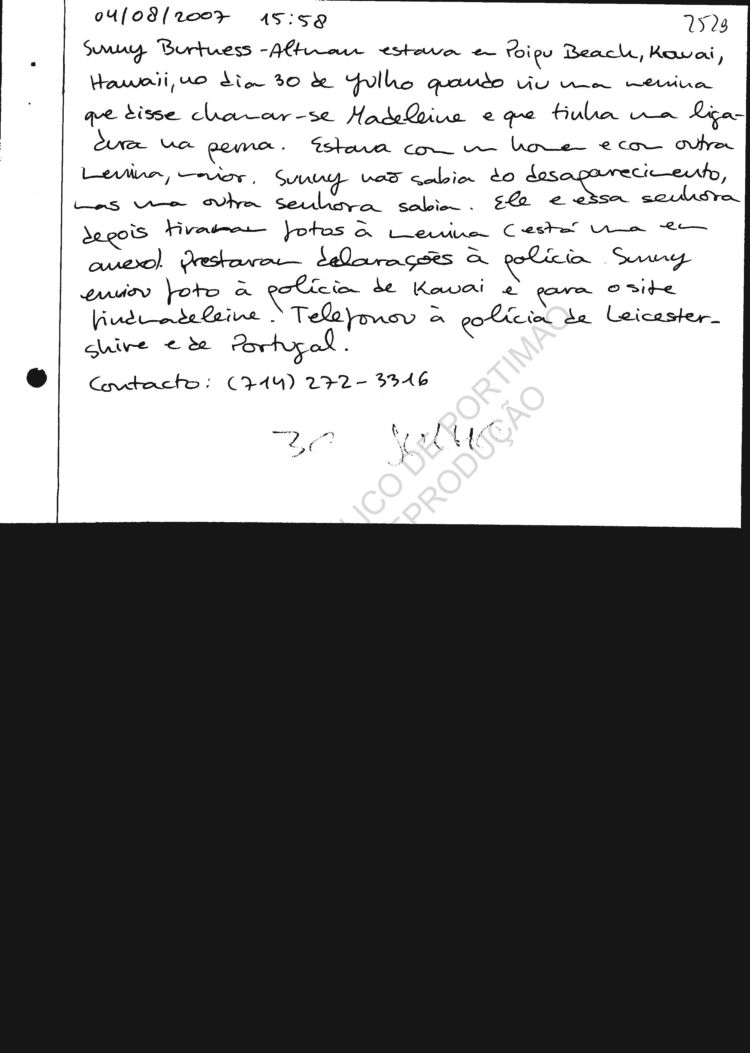 04/08/2007 15:58 2529
Sunny Burtness-Altman estava em Poipu Beach, Kawai,
Hawaii, no dia 30 de Julho quando viu uma menina
que disse chamar-se Madeleine e que tinha uma liga-
dura na perna. Estava com um homem e com outra
menina, maior. Sunny não sabia do desaparecimento,
mas uma outra senhora sabia. Ele e essa senhora
depois tiraram fotos à menina (está uma em
anexo). Prestaram delarações à polícia. Sunny
enviou foto à polícia de Kawai e para o site
findmadeleine. Telefonou à polícia de Leicester-
shire e de Portugal.
Contacto: (714) 272-3316
30 JULHO
ICO DE PORTIMÃO
EPRODUÇÃO